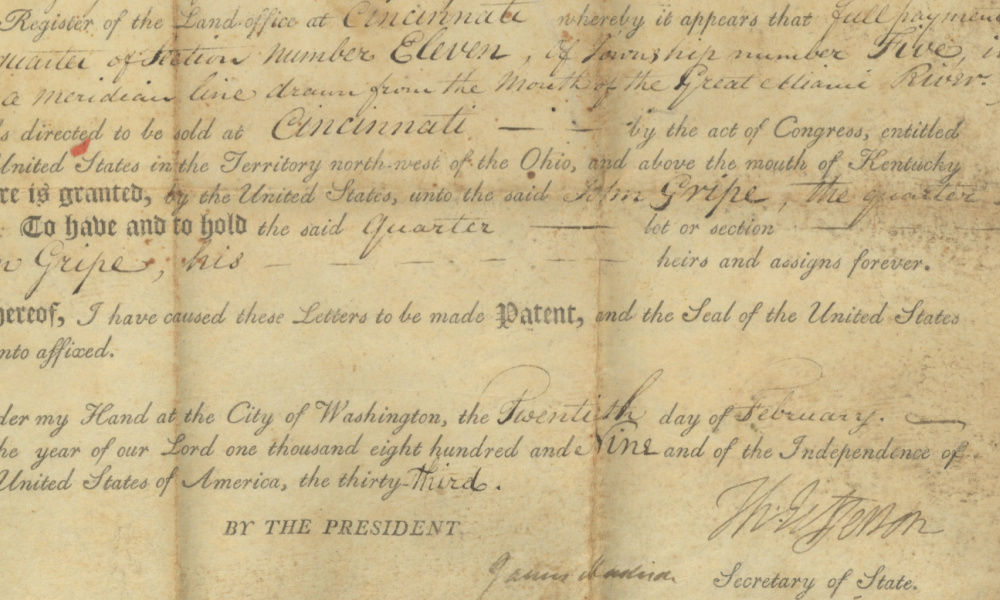 Register of the Land-office at Cincinnati whereby it appears that full payment
quarter of Section number Eleven, of Township number Five, i
a meridian line drawn from the Mouth of the Great Miami River,
s directed to be sold at Cincinnati — — by the act of Congress, entitled
United States in the Territory north-west of the Ohio, and above the mouth of Kentucky
re is granted, by the United States, unto the said John Gripe, the quarter
To have and to hold the said Quarter — lot or section —
n Gripe, his — — — — — — — heirs and assigns forever.
hereof, I have caused these Letters to be made Patent, and the Seal of the United States
nto affixed.
der my Hand at the City of Washington, the Twentieth day of February. —
he year of our Lord one thousand eight hundred and Nine and of the Independence of
United States of America, the thirty-Third.
Th: Jefferson
BY THE PRESIDENT
James Madison Secretary of State.